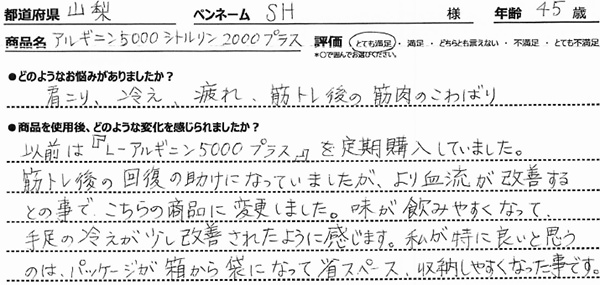 都道府県 山梨 ペンネーム SH 様 年齢 45 歳
商品名 アルギニン5000シトルリン2000プラス 評価 とても満足・満足・どちらとも言えない・不満足・とても不満足
*○で囲んでお選びください。
●どのようなお悩みがありましたか?
肩こり、冷え、疲れ、筋トレ後の筋肉のこわばり
●商品を使用後、どのような変化を感じられましたか?
以前は『L-アルギニン5000プラス』を定期購入していました。
筋トレ後の回復の助けになっていましたが、より血流が改善する
との事で、こちらの商品に変更しました。味が飲みやすくなって、
手足の冷えが少し改善されたように感じます。私が特に良いと思う
のは、パッケージが箱から袋になって省スペース、収納しやすくなった事です。